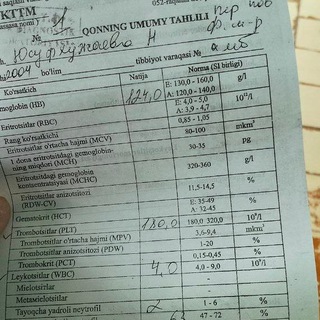 KTTM
QONNING UMUMY TAHLILI
№
tibbiyot varaqasi №
2004 bo'lim
Ko'rsatkich Natija Norma (SI birligi)
Gemoglobin (HB) 124,0 E: 130,0 - 160,0 g/l
A: 120,0 - 140,0
Eritrotsitlar (RBC) E: 4,0 - 5,0 10¹²/l
A: 3,9 - 4,7
Rang ko'rsatkichi 0,85 - 1,05
Eritrotsitlar o'rtacha hajmi (MCV) 80-100 mkm³
1 dona eritrotsitdagi gemoglobin- 30-35 pg
ning miqdori (MCH)
Eritrotsitdagi gemoglobin 320-360 g/l
kontsentratsiyasi (MCHC)
Eritrotsitlar anizotsitozi 11,5-14,5 %
(RDW-CV)
Gematokrit (HCT) E: 35-49 %
A: 32-45
Trombotsitlar (PLT) 180,0 180,0 320,0 10⁹/l
Trombotsitlar o'rtacha hajmi (MPV) 3,6-9,4 mkm³
Trombotsitlar anizotsitozi (PDW) 1-20 %
Trombokrit (PCT) 0,15-0,45 %
Leykotsitlar (WBC) 4,0 4,0 - 9,0 10⁹/l
Mielotsitlar %
Metamielotsitlar %
Tayoqcha yadroli neytrofil 2 1 - 6 %
63 47 - 72 %